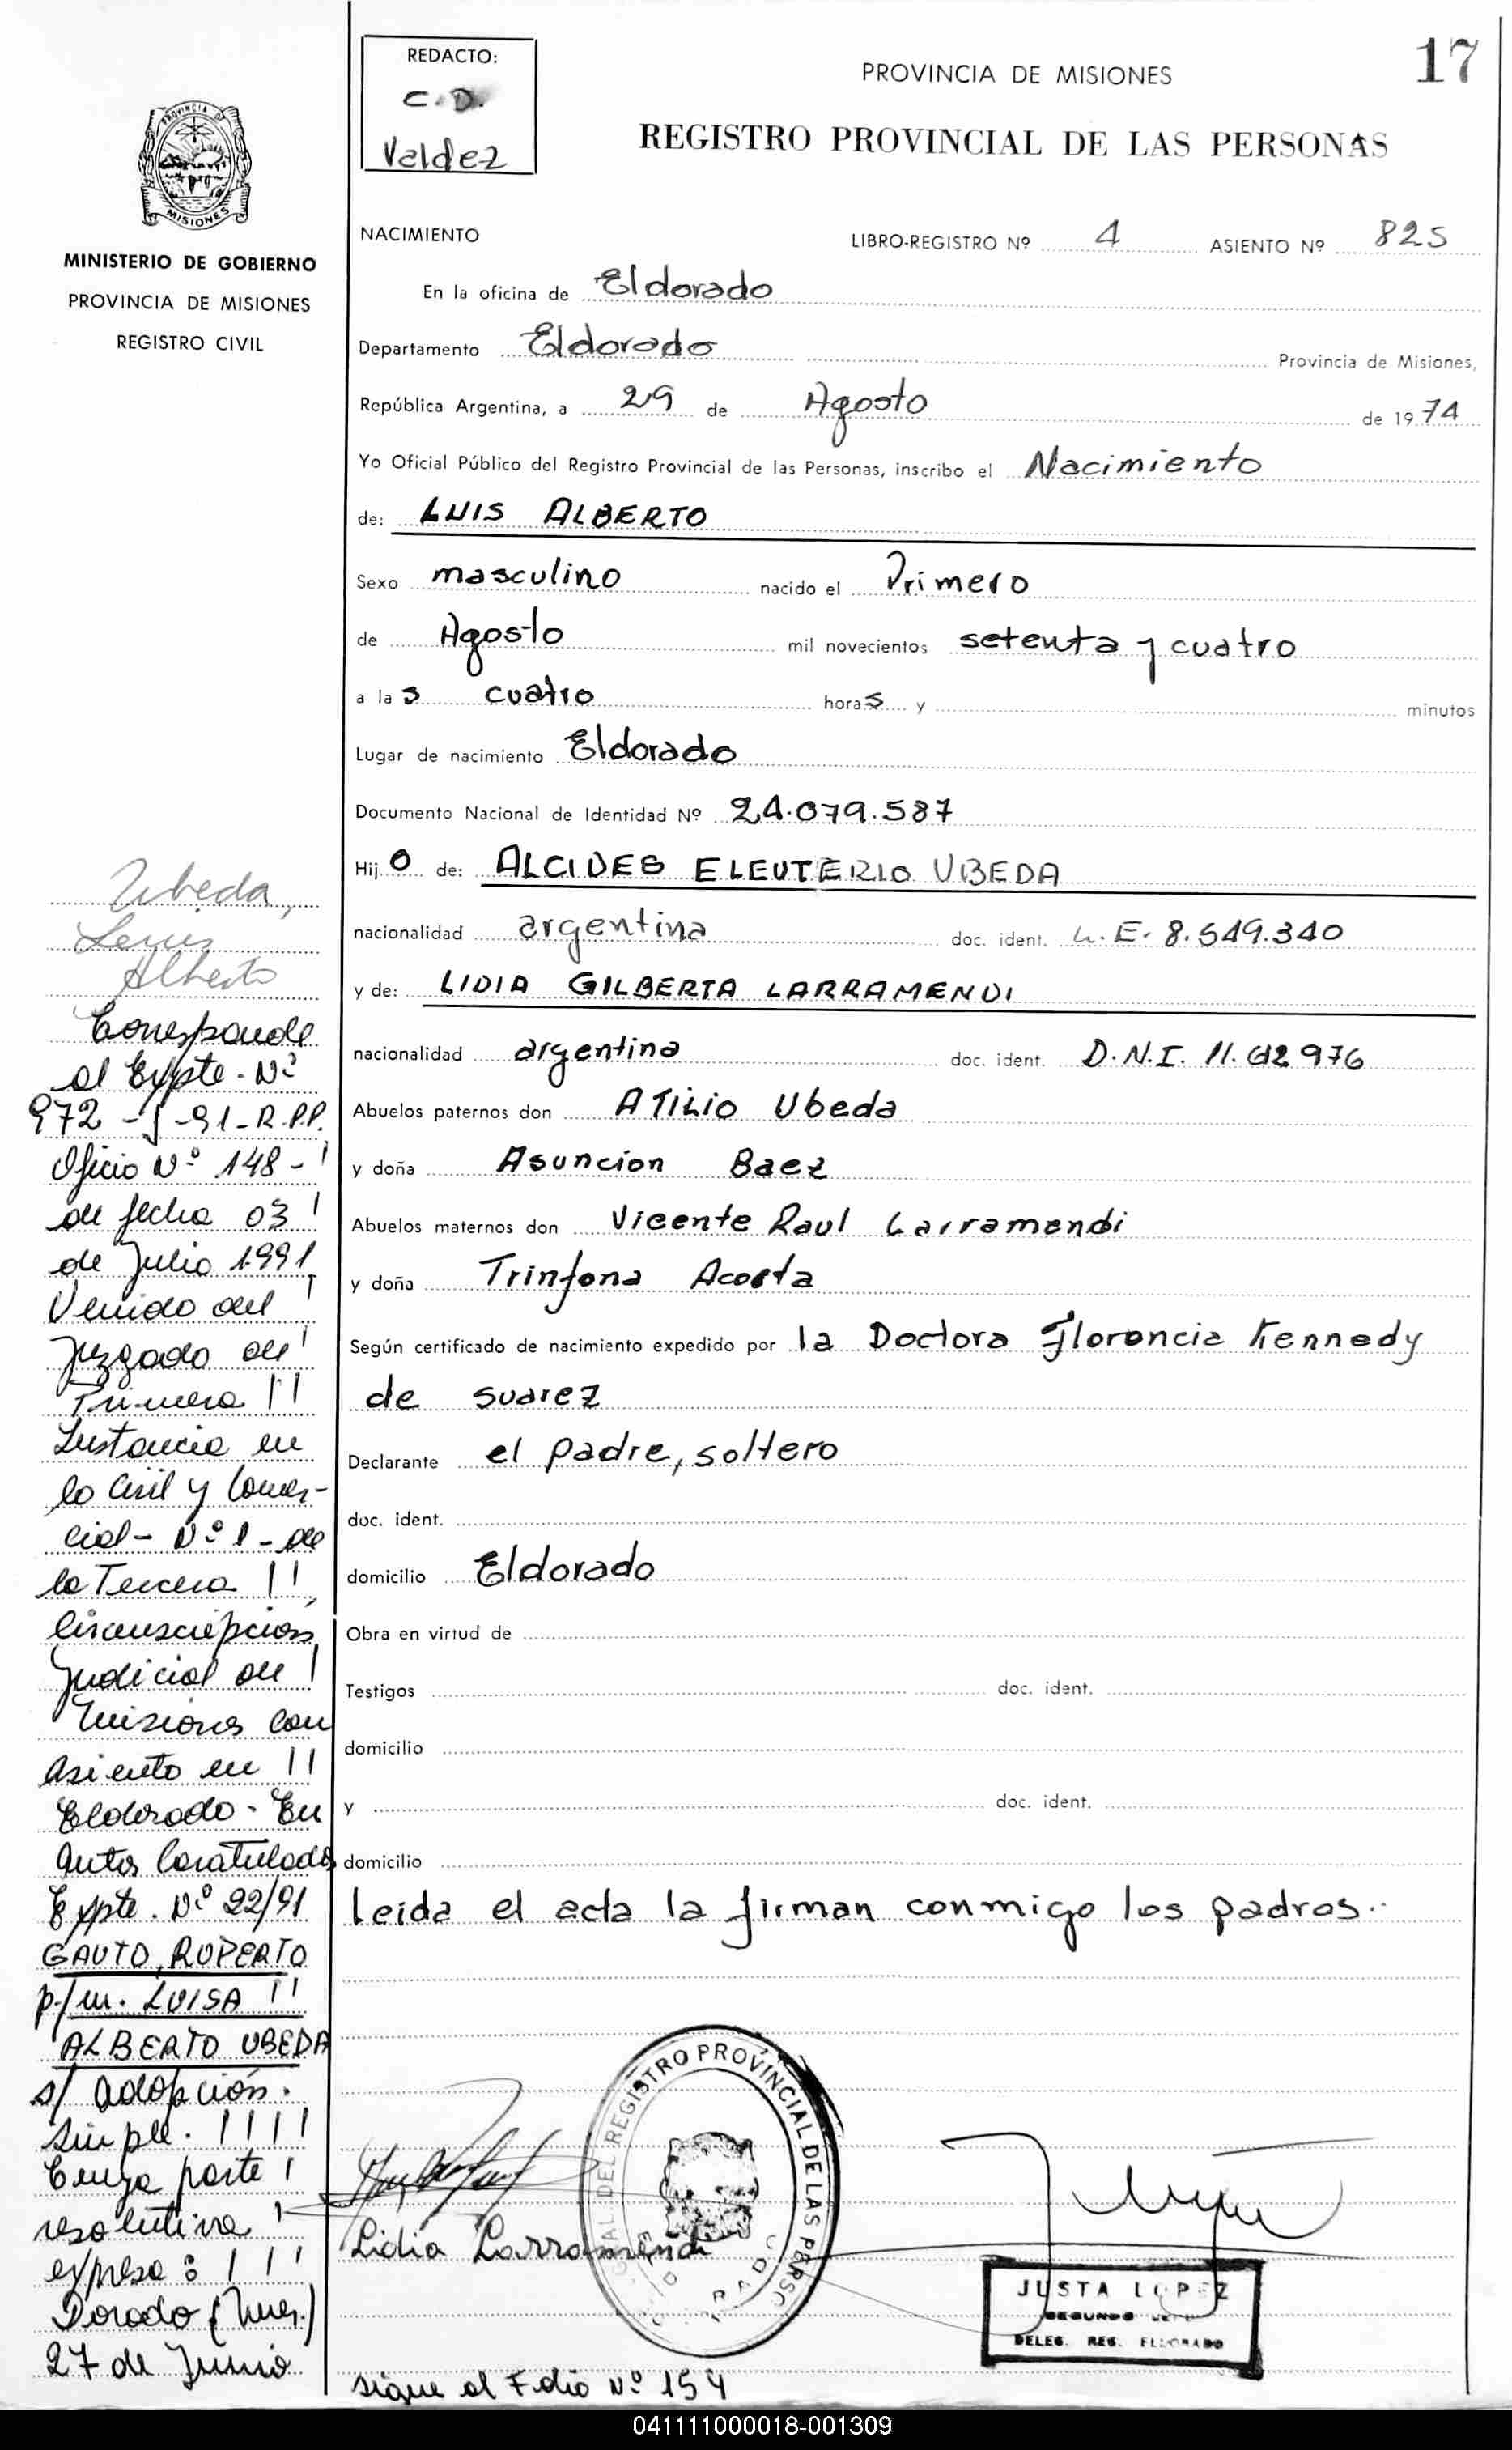 17
REDACTO:
C.D.
Valdez
PROVINCIA DE MISIONES
REGISTRO PROVINCIAL DE LAS PERSONAS
PROVINCIA DE
MISIONES
MINISTERIO DE GOBIERNO
PROVINCIA DE MISIONES
REGISTRO CIVIL
NACIMIENTO LIBRO-REGISTRO Nº 4 ASIENTO Nº 825
En la oficina de Eldorado
Departamento Eldorado Provincia de Misiones,
República Argentina, a 29 de Agosto de 1974
Yo Oficial Público del Registro Provincial de las Personas, inscribo el Nacimiento
de: LUIS ALBERTO
Sexo masculino nacido el Primero
de Agosto mil novecientos setenta y cuatro
a las cuatro horas y minutos
Lugar de nacimiento Eldorado
Documento Nacional de Identidad Nº 24.079.587
Hijo de: ALCIDES ELEUTERIO UBEDA
nacionalidad argentina doc. ident. L.E. 8.549.340
y de: LIDIA GILBERTA LARRAMENDI
nacionalidad argentina doc. ident. D.N.I. 11.612976
Abuelos paternos don ATILIO Ubeda
y doña Asuncion Baez
Abuelos maternos don Vicente Raul Larramendi
y doña Trinfona Acosta
Según certificado de nacimiento expedido por la Doctora Florencia Kennedy
de suarez
Declarante el padre, soltero
doc. ident.
domicilio Eldorado
Obra en virtud de
Testigos doc. ident.
domicilio
y doc. ident.
domicilio
Leida el acta la firman conmigo los padres.
Lidia Larramendi
REGISTRO PROVINCIAL DE LAS PERSO
JUSTA LOPEZ
SEGUNDO JEFE
DELEG. REG. ELDORADO
sigue al Folio Nº 154
Ubeda,
Luis
Alberto
Corresponde
al Expte. Nº
972 - J -91-R.P.P.
Oficio Nº 148 -
de fecha 03
de Julio 1.991
Venido del
Juzgado de
Primera
Instancia en
lo Civil y Comer-
cial - Nº 1 - de
la Tercera
Circunscripción
Judicial de
Misiones con
asiento en
Eldorado - En
autos Caratulados
Expte. Nº 22/91
GAUTO, RUPERTO
p/m. LUISA
ALBERTO UBEDA
s/ adopción
simple.
Cuya parte
resolutiva
expresa:
Dorado (Mnes.)
27 de Junio
041111000018-001309